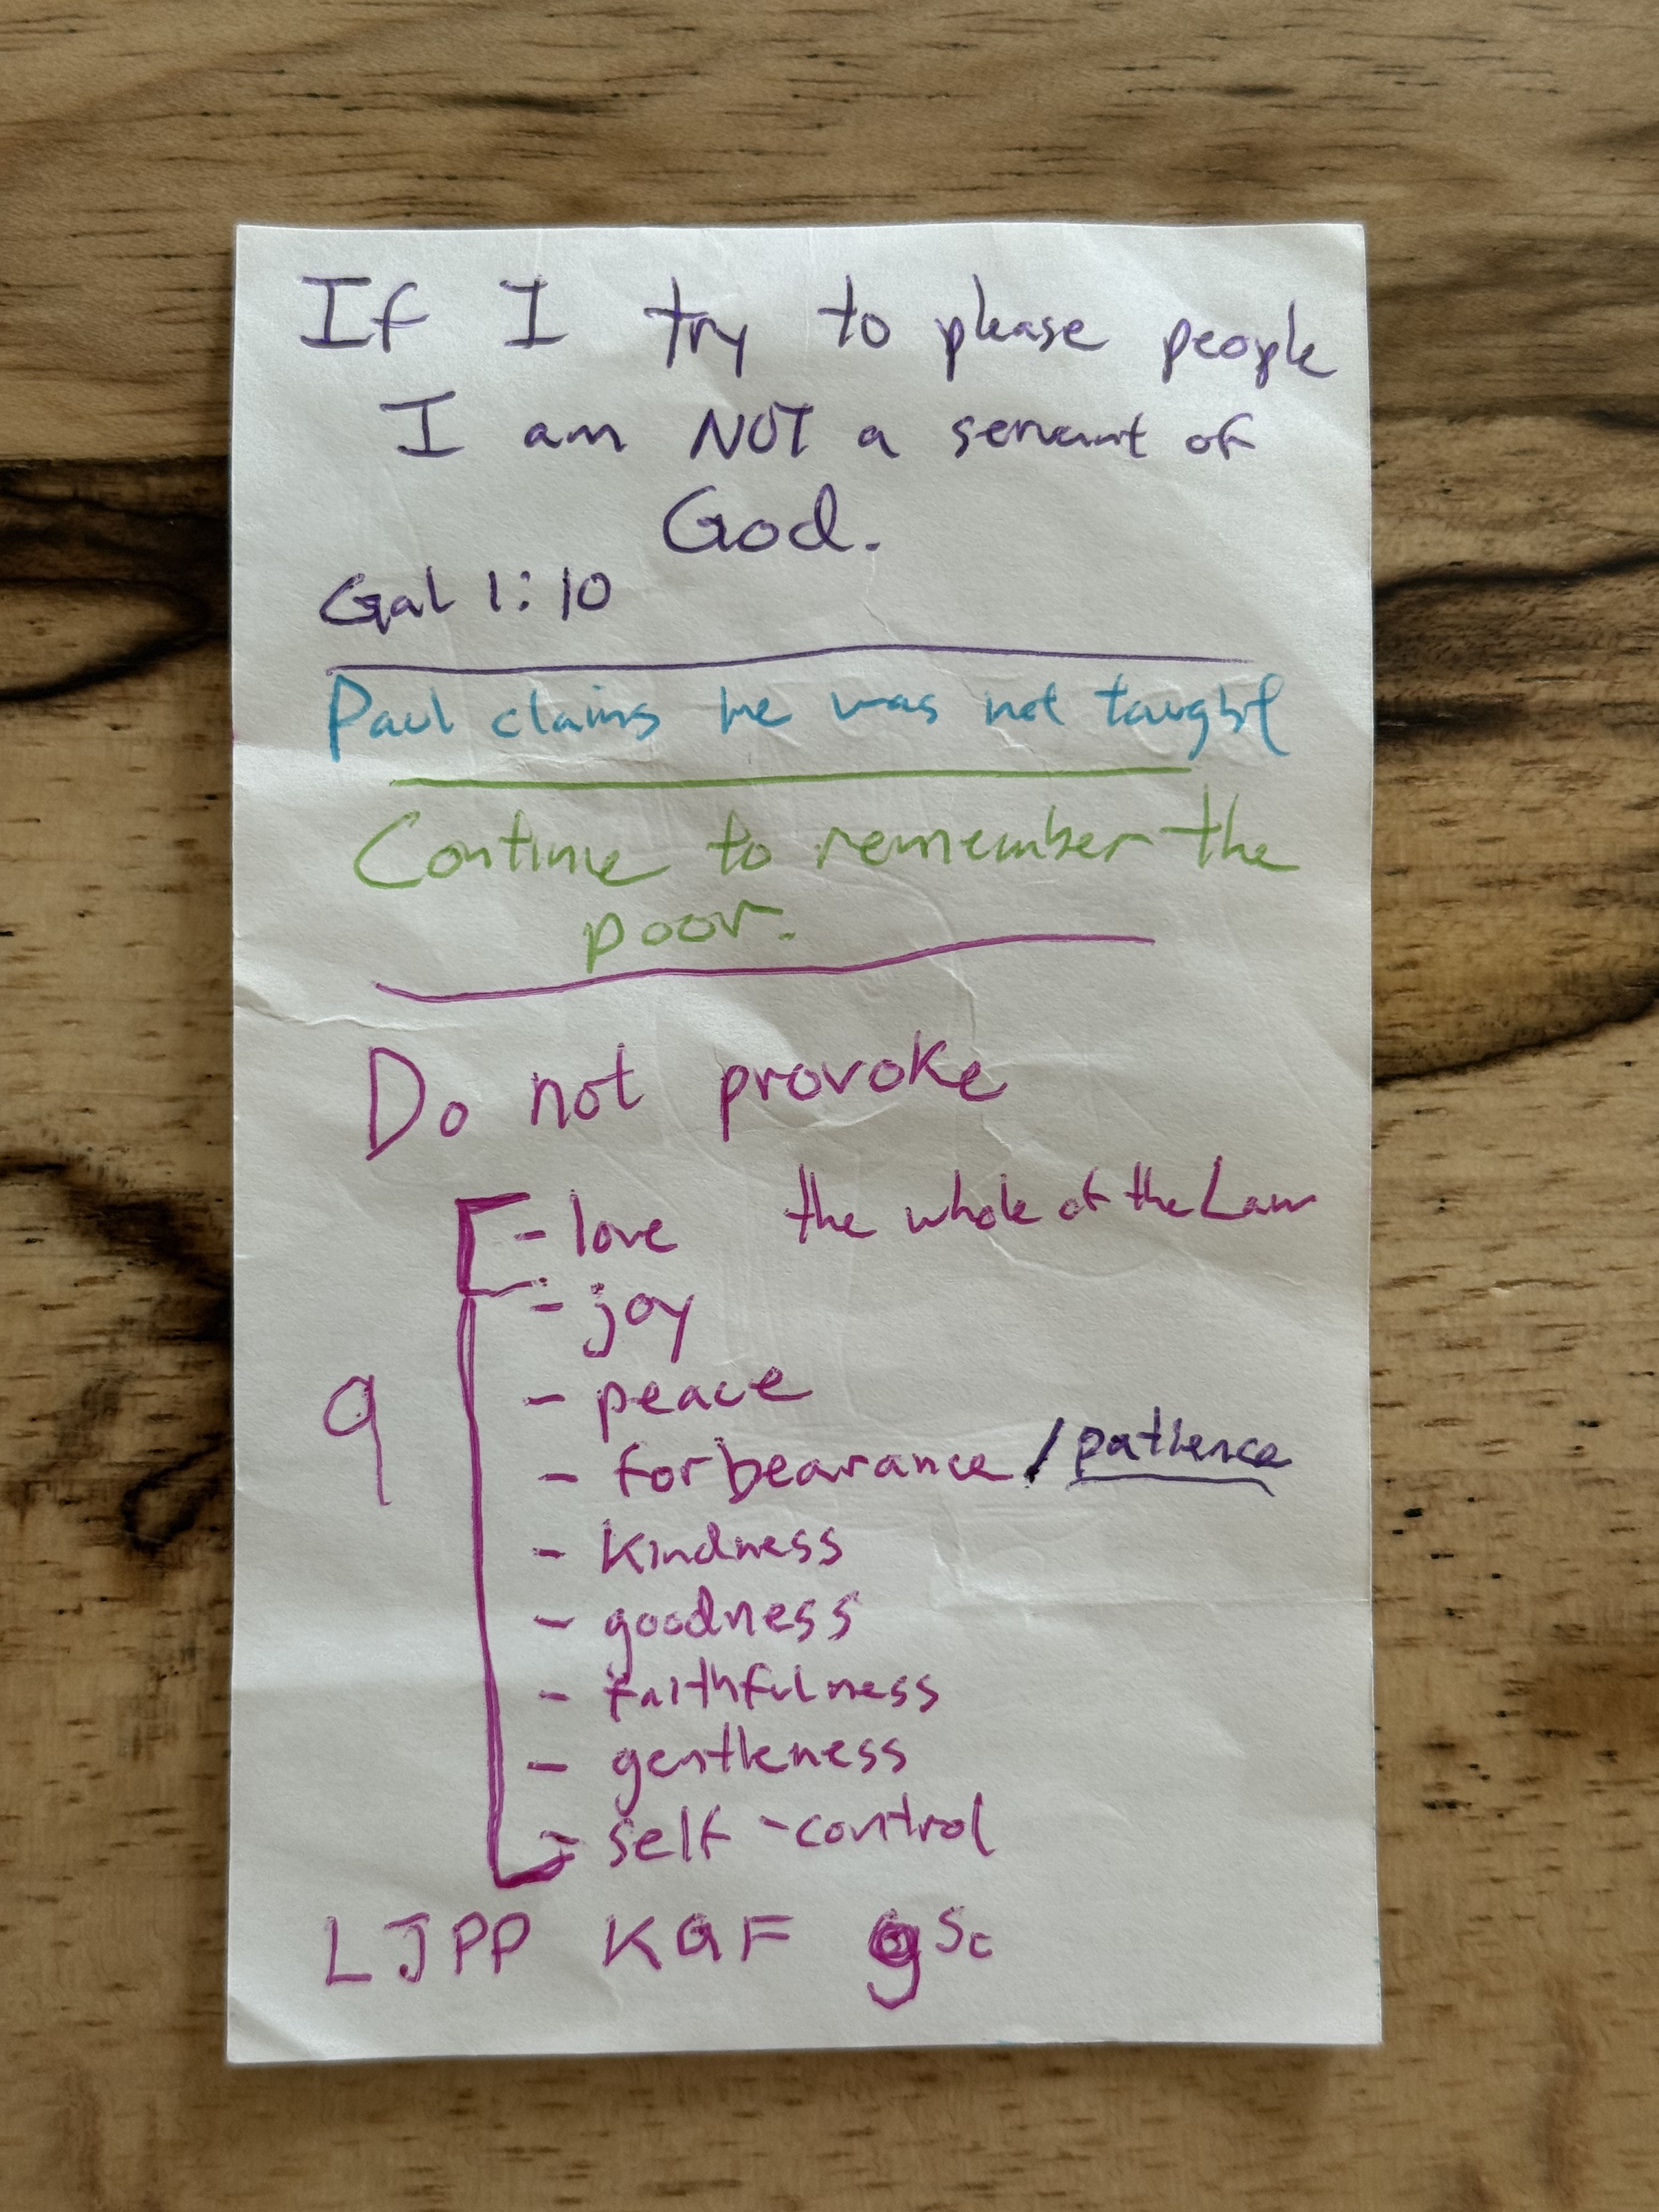 If I try to please people
I am NOT a servant of
God.
Gal 1:10
Paul claims he was not taught
Continue to remember the
poor.
Do not provoke
- love the whole of the Law
- joy
- peace
9
- forbearance / patience
- kindness
- goodness
- faithfulness
- gentleness
- self-control
LJPP KGF gSc